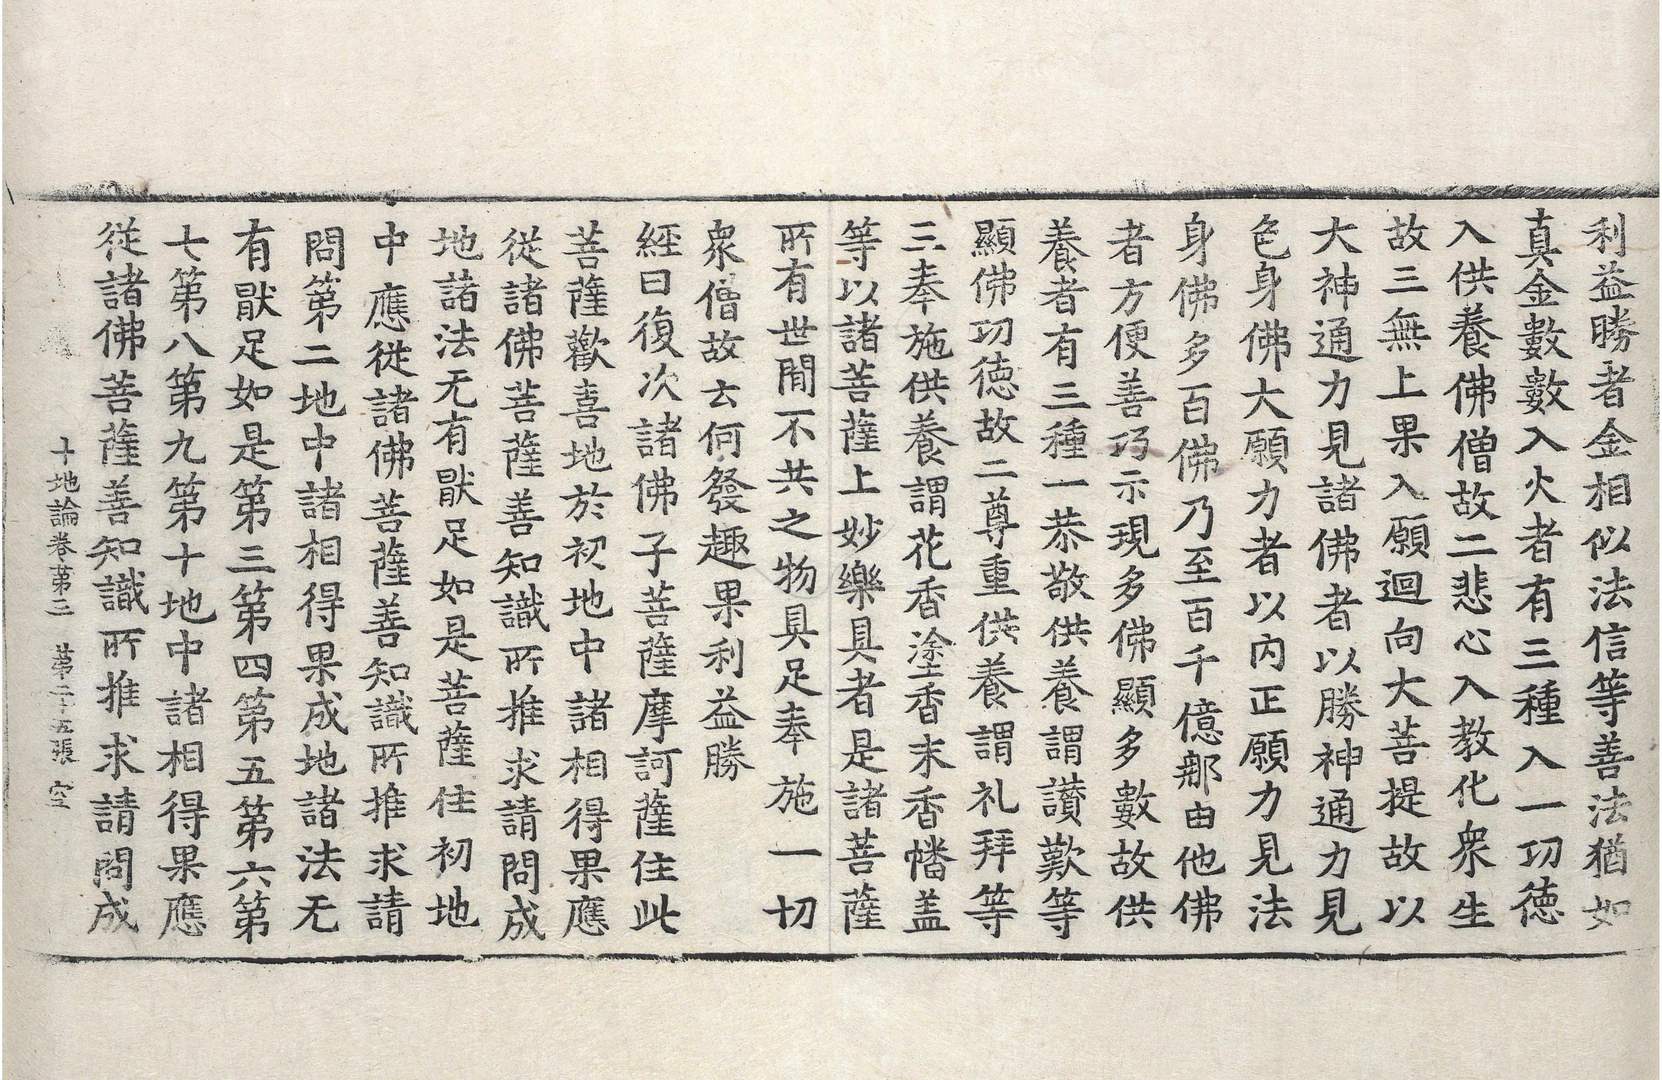 利益勝者金相似法信等善法猶如
真金數數入火者有三種入一㓛德
入供養佛僧故二悲心入教化衆生
故三無上果入願迴向大菩提故以
大神通力見諸佛者以勝神通力見
色身佛大願力者以内正願力見法
身佛多百佛乃至百千億那由他佛
者方便善巧示現多佛顯多數故供
養者有三種一恭敬供養謂讃歎等
顯佛㓛德故二尊重供養謂礼拜等
三奉施供養謂花香塗香末香幡盖
等以諸菩薩上妙樂具者是諸菩薩
所有世閒不共之物具足奉施一切
衆僧故云何發趣果利益勝
經曰復次諸佛子菩薩摩訶薩住此
菩薩歡喜地於初地中諸相得果應
從諸佛菩薩善知識所推求請問成
地諸法无有猒足如是菩薩住初地
中應從諸佛菩薩善知識所推求請
問第二地中諸相得果成地諸法无
有猒足如是第三第四第五第六第
七第八第九第十地中諸相得果應
從諸佛菩薩善知識所推求請問成
十地論卷苐三　苐二十五張　空